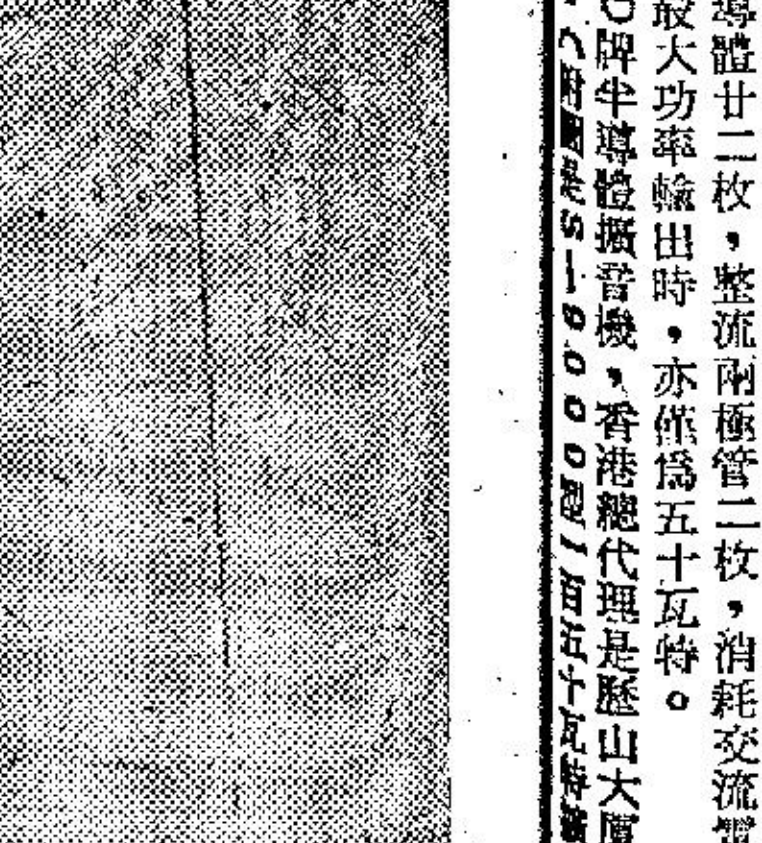 導體廿二枚，整流兩極管二枚，消耗交流電
最大功率輸出時，亦僅為五十瓦特。
牌半導體擴音機，香港總代理是歷山大厦
S—6000型，百五十瓦特